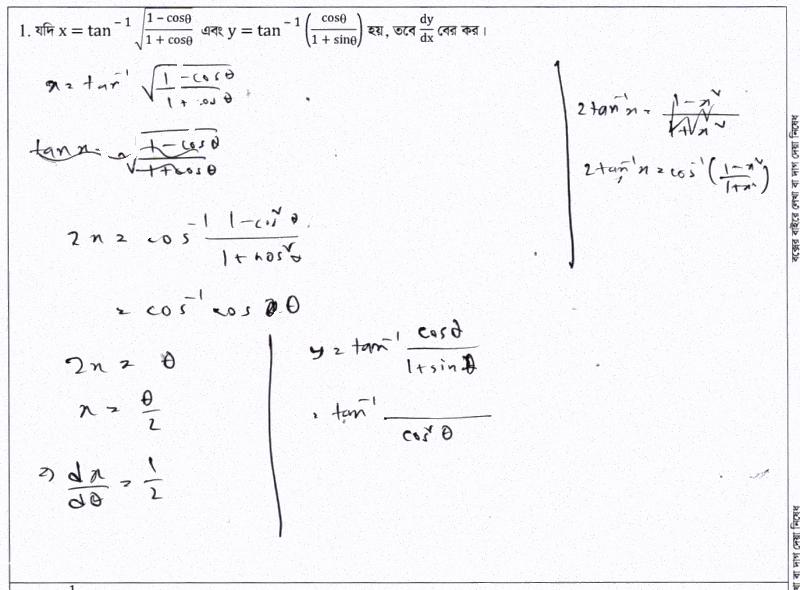 1. যদি x = tan⁻¹ √((1 − cosθ)/(1 + cosθ)) এবং y = tan⁻¹ (cosθ/(1 + sinθ)) হয়, তবে dy/dx বের কর।
x = tan⁻¹ √((1 − cosθ)/(1 + cosθ))
tan x = √((1 − cosθ)/(1 + cosθ))
2x = cos⁻¹ (1 − cos²θ)/(1 + cos²θ)
= cos⁻¹ cos θ
2x = θ
x = θ/2
⇒ dx/dθ = 1/2
y = tan⁻¹ cosθ/(1 + sinθ)
= tan⁻¹ /cos²θ
2tan⁻¹x = (1 − x²)/(1 + x²)
2tan⁻¹x = cos⁻¹ ((1 − x²)/(1 + x²))
বক্সের বাইরে লেখা বা দাগ দেয়া নিষেধ
খা বা দাগ দেয়া নিষেধ
1